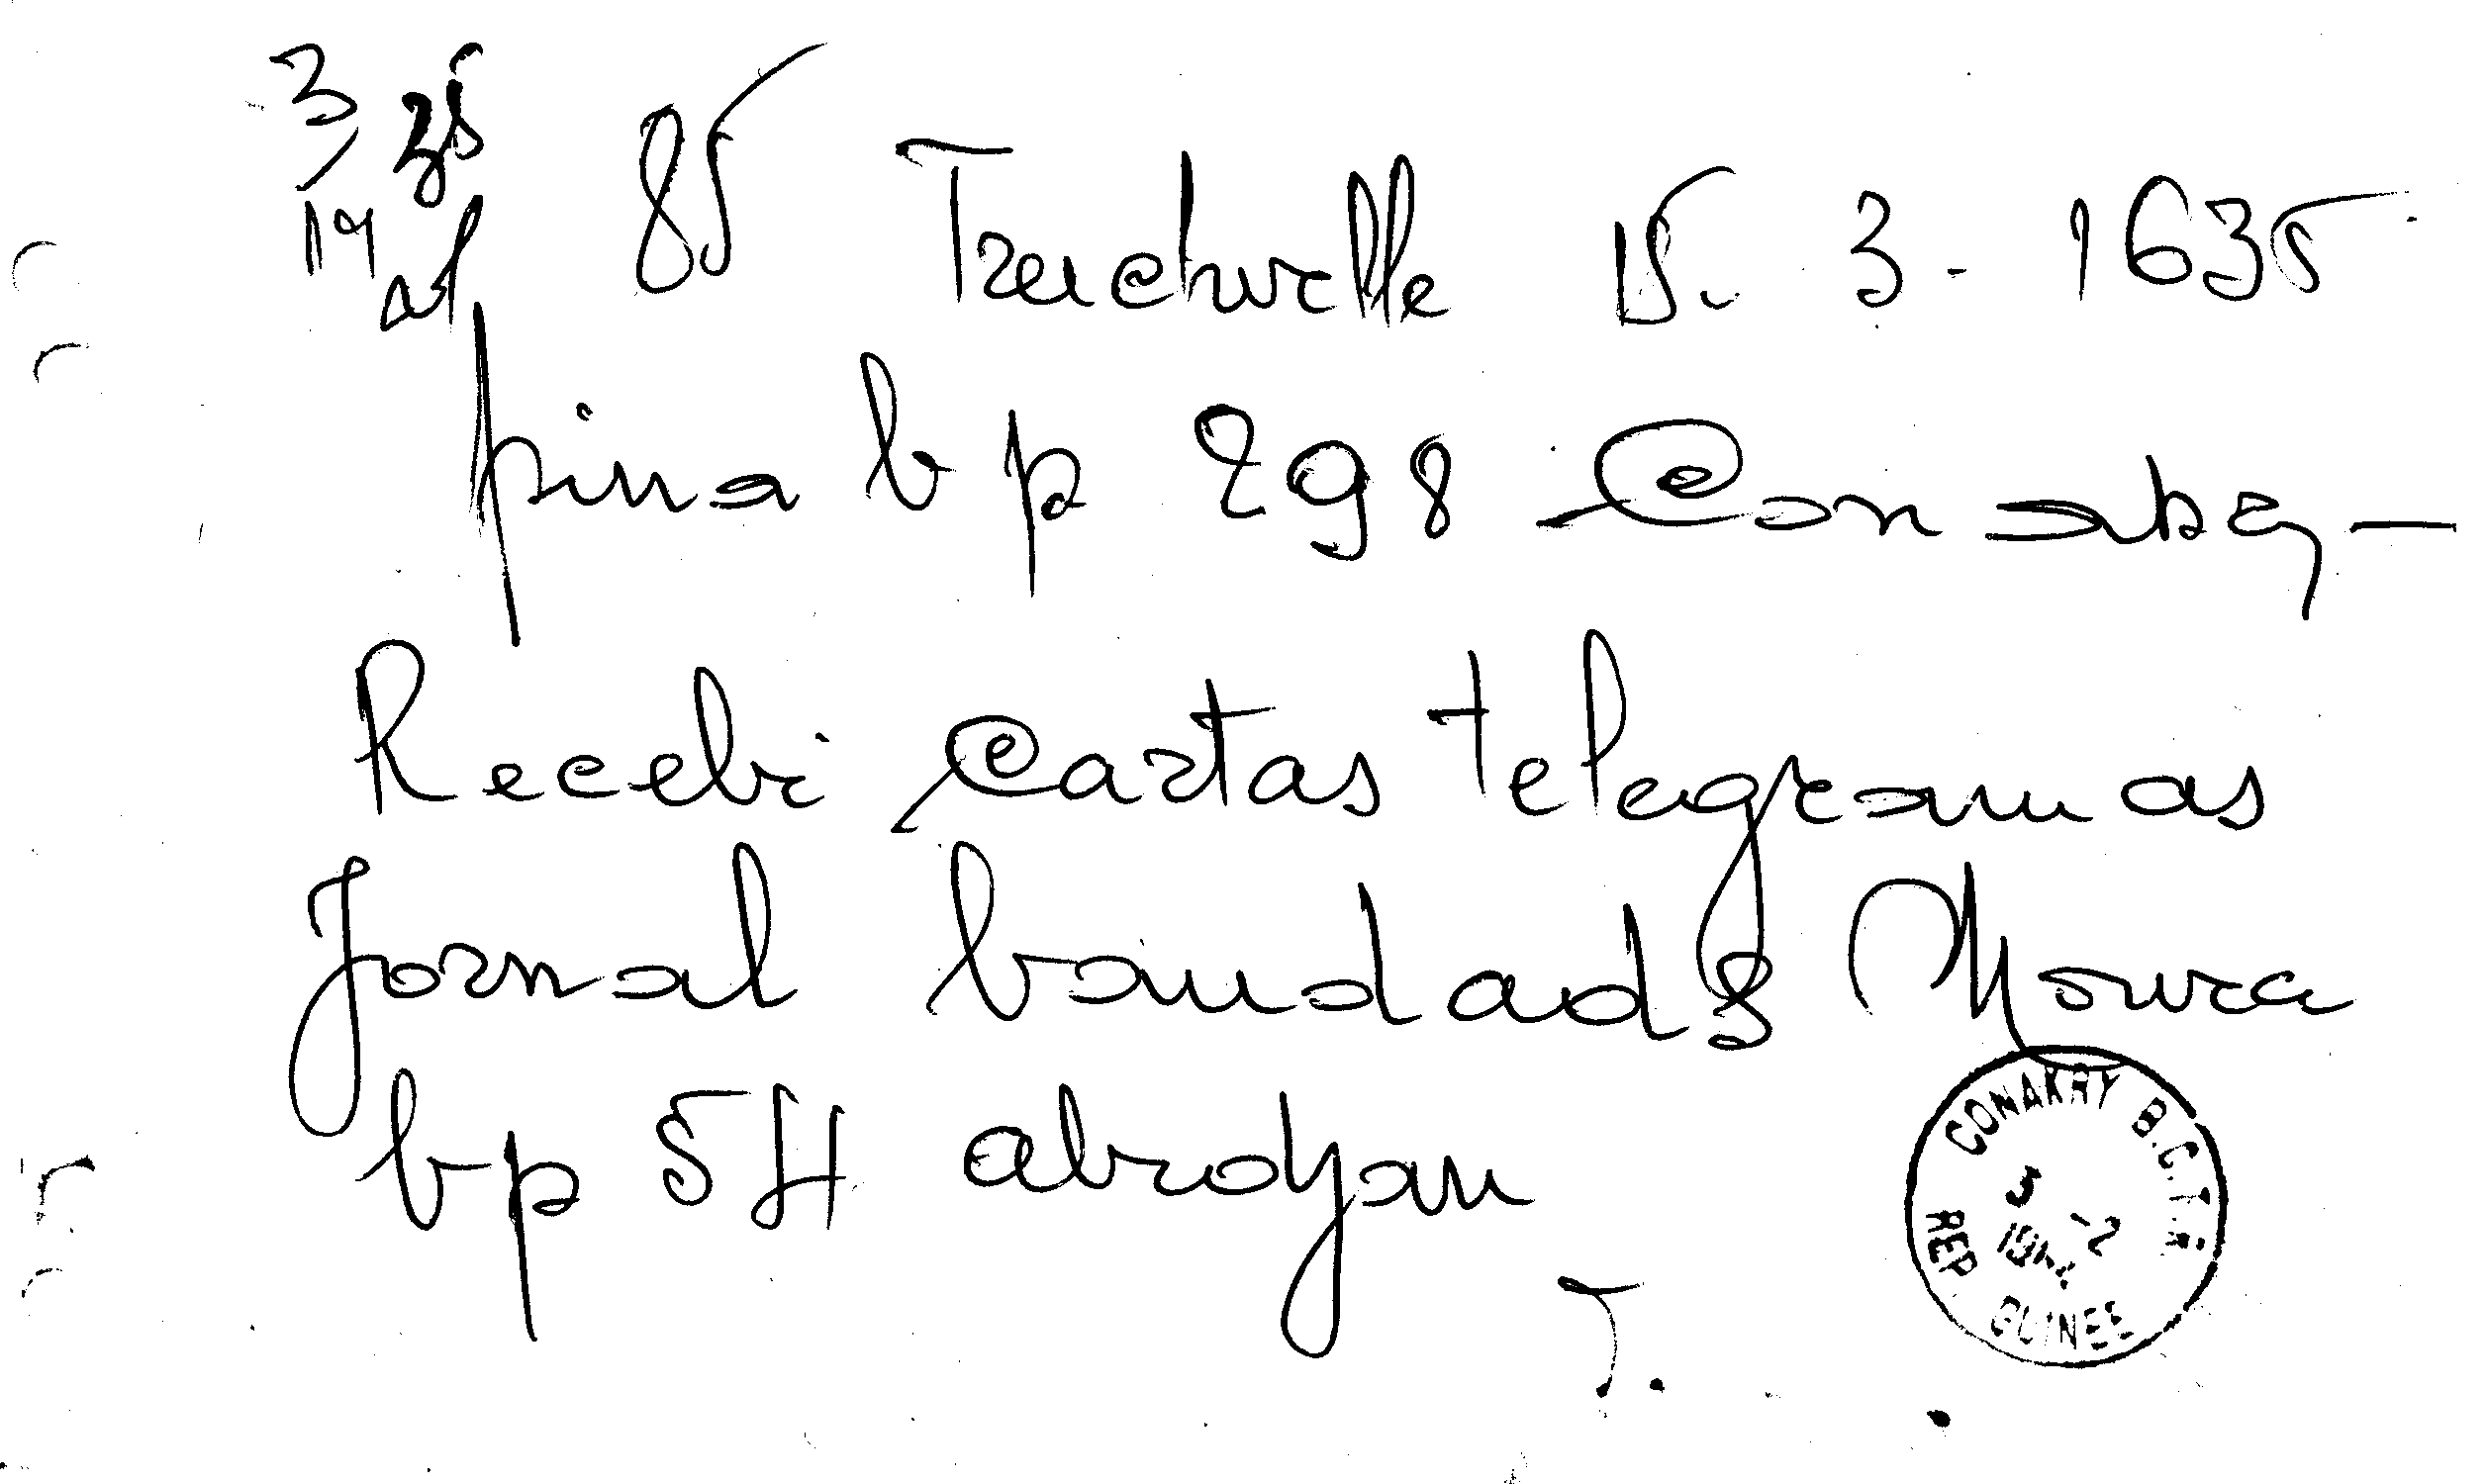 85 Treichville 15. 3 - 1635
pina b p 298 Conakry -
Recebi Cartas telegramas
Jornal bandads Moura
bp 54 abidjan
CONAKRY B.C.T.R
REP GUINEE